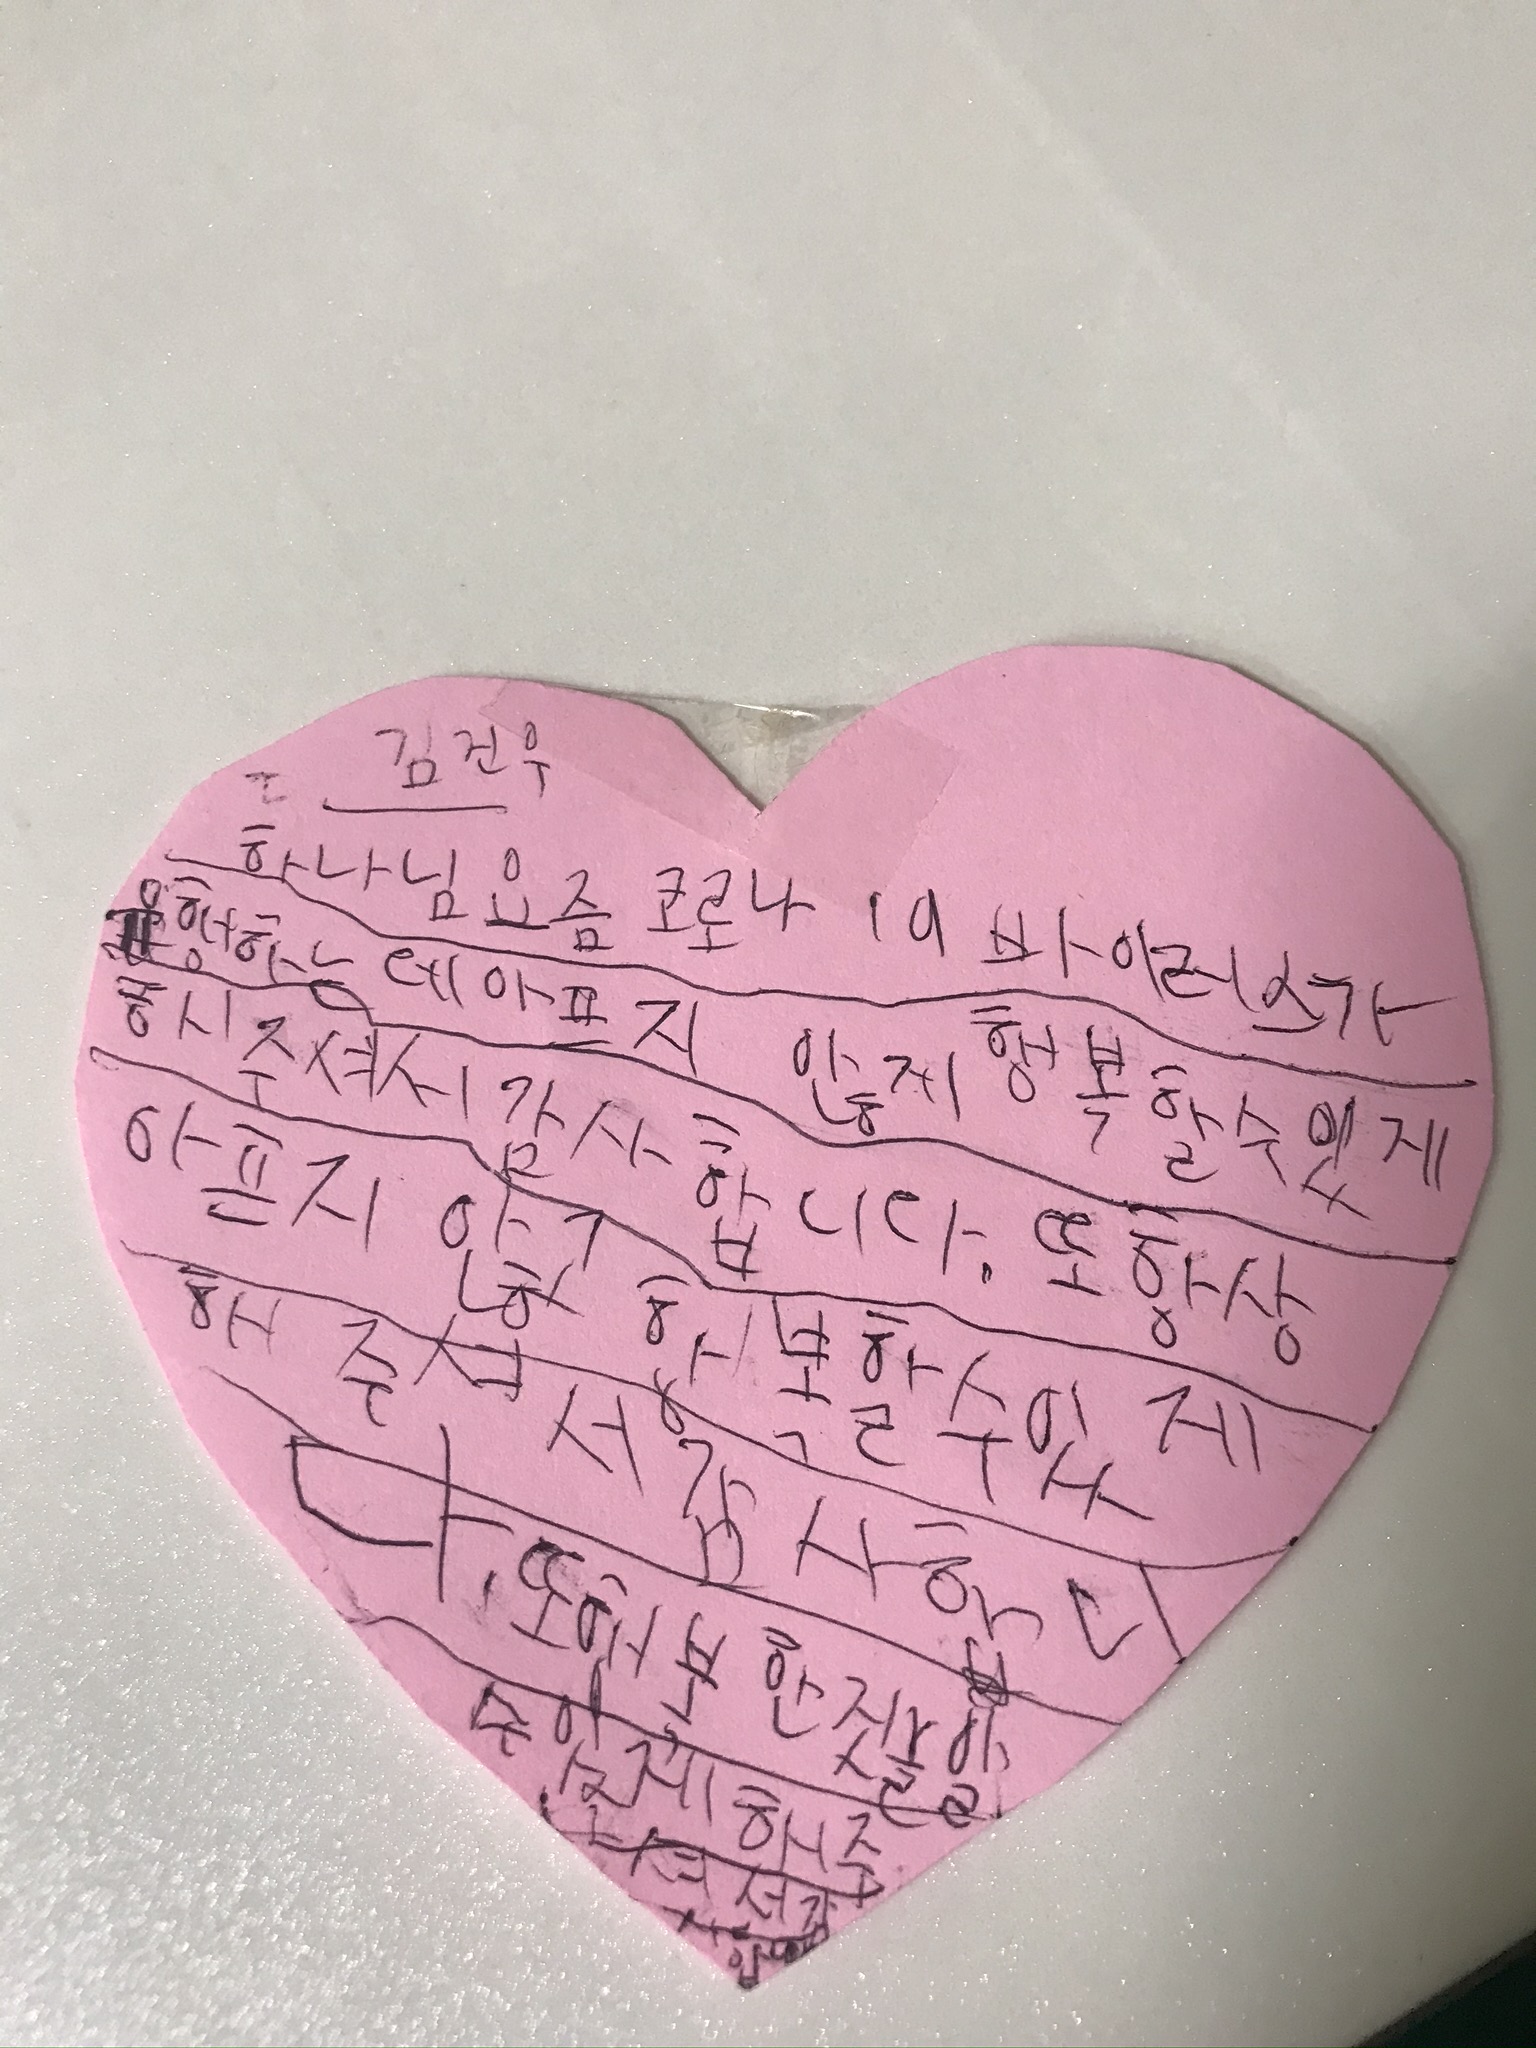 김건우
하나님 요즘 코로나 19 바이러스가
유행하는데 아프지 안께 행복할수있게
해주셔서 감사합니다. 또 항상
아프지 안고 행복할수있게
해 주셔서 감사합니
다. 또 행복한 짓을
할수있게 해주
셔서 감